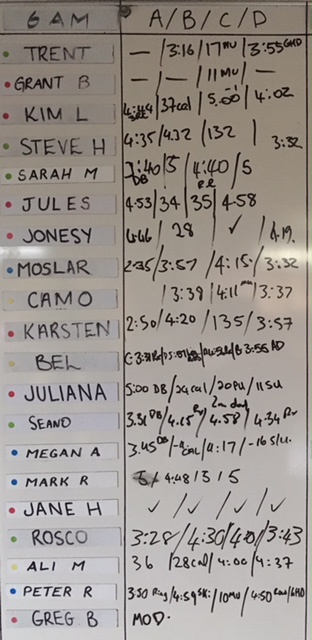 6 AM A/B/C/D
TRENT — /3:16/17MU/3:55GHD
GRANT B — / — /11MU/ —
KIM L /37cal/5.00/4.02
STEVE H 4:35/4.32/132 / 3:52
SARAH M 7:40/5/4:40/5
DB
JULES 4:53/34/35/4.58
JONESY / 28 / ✓ / 4.19.
MOSLAR 2:35/3:57/4:15/3:32
CAMO /3:38/4:11/3:37
KARSTEN 2:50/4:20/135/3:57
BEL 3:55 AD
JULIANA 5:00 DB/24cal/20PU/11SU
SEANO 3.51 DB/4.15/4.58/4.34
MEGAN A 3.45 DB/CAL/4:17/
MARK R 5/4:48/3/5
JANE H ✓ / ✓ / ✓ / ✓
ROSCO 3:28/4:30/ /3:43
ALI M 36/28cal/4:00/4:37
PETER R 3:50 /4:59 /10MU/4:50
GREG B MOD.